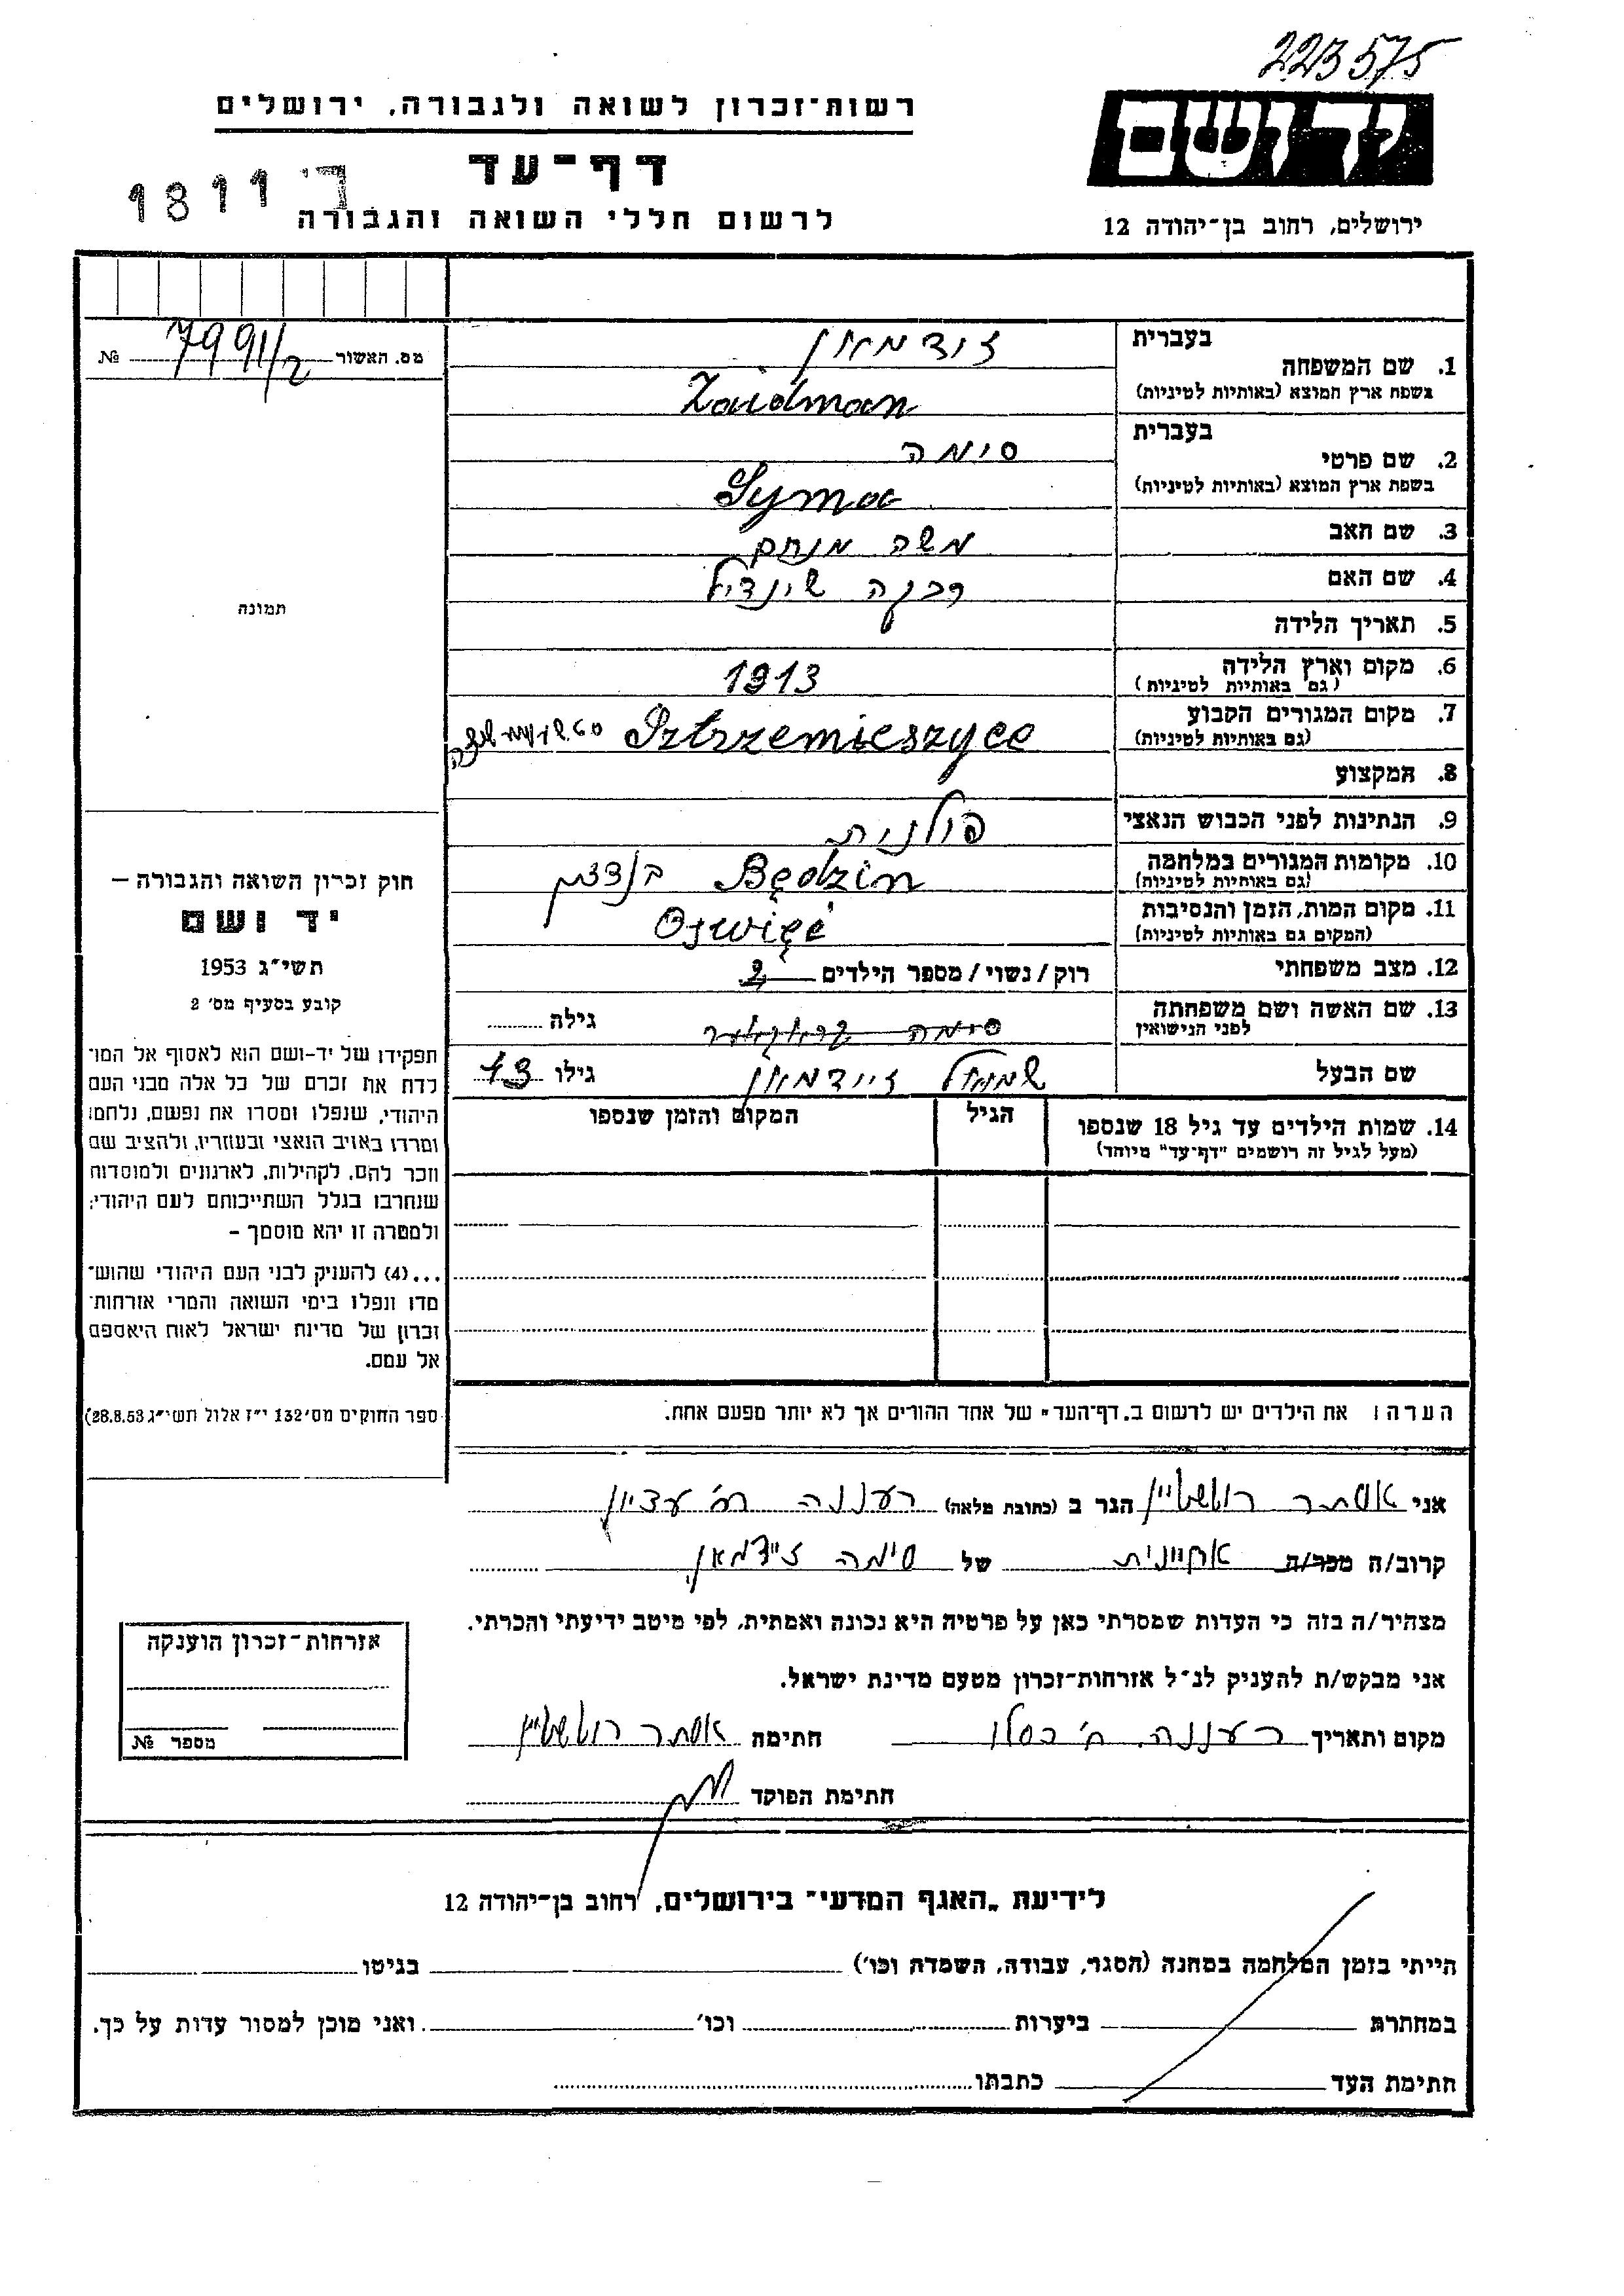 223575
יד ושם
ירושלים, רחוב בן־יהודה 12
רשות־זכרון לשואה ולגבורה, ירושלים
דף־עד
לרשום חללי השואה והגבורה
1811 ד'
מס. האשור 7991/2 №
תמונה
חוק זכרון השואה והגבורה –
יד ושם
תשי״ג 1953
קובע בסעיף מס' 2
תפקידו של יד-ושם הוא לאסוף אל המו־
לדת את זכרם של כל אלה מבני העם
היהודי, שנפלו ומסרו את נפשם, נלחמו
ומרדו באויב הנאצי ובעוזריו, ולהציב שם
וזכר להם, לקהילות, לארגונים ולמוסדות
שנחרבו בגלל השתייכותם לעם היהודי;
ולמטרה זו יהא מוסמך –
...(4) להעניק לבני העם היהודי שהוש־
מדו ונפלו בימי השואה והמרי אזרחות־
זכרון של מדינת ישראל לאות היאספם
אל עמם.
ספר החוקים מס' 132 י״ז אלול תשי״ג 28.8.53)
1. שם המשפחה
בעברית זידמאן
בשפת ארץ המוצא (באותיות לטיניות) Zaidman
2. שם פרטי
בעברית סימה
בשפת ארץ המוצא (באותיות לטיניות) Syma
3. שם האב משה מנחם
4. שם האם רבקה שינדיל
5. תאריך הלידה
6. מקום וארץ הלידה 1913
(גם באותיות לטיניות)
7. מקום המגורים הקבוע Sztrzemieszyce
(גם באותיות לטיניות)
8. המקצוע
9. הנתינות לפני הכבוש הנאצי פולנית
10. מקומות המגורים במלחמה Będzin בנדצין
(גם באותיות לטיניות)
11. מקום המות, הזמן והנסיבות Oświęć
(המקום גם באותיות לטיניות)
12. מצב משפחתי רוק/נשוי/מספר הילדים 2
13. שם האשה ושם משפחתה סימה גילה
לפני הנישואין
שם הבעל שמואל זיידמאן גילו 43
14. שמות הילדים עד גיל 18 שנספו הגיל המקום והזמן שנספו
(מעל לגיל זה רושמים "דף־עד" מיוחד)
הערה: את הילדים יש לרשום ב„דף־העד״ של אחד ההורים אך לא יותר מפעם אחת.
אני אסתר רוטשטיין הגר ב (כתובת מלאה) רעננה רח' עציון
קרוב/ה מכר/ה אחיינית של סימה זיידמאן
מצהיר/ה בזה כי העדות שמסרתי כאן על פרטיה היא נכונה ואמתית, לפי מיטב ידיעתי והכרתי.
אני מבקש/ת להעניק לנ״ל אזרחות־זכרון מטעם מדינת ישראל.
מקום ותאריך רעננה, ח' כסלו חתימה אסתר רוטשטיין
חתימת הפוקד
אזרחות־זכרון הוענקה
מספר №
לידיעת „האגף המדעי״ בירושלים, רחוב בן־יהודה 12
הייתי בזמן המלחמה במחנה (הסגר, עבודה, השמדה וכו') בגיטו
במחתרת ביערות וכו' ואני מוכן למסור עדות על כך.
חתימת העד כתבתו